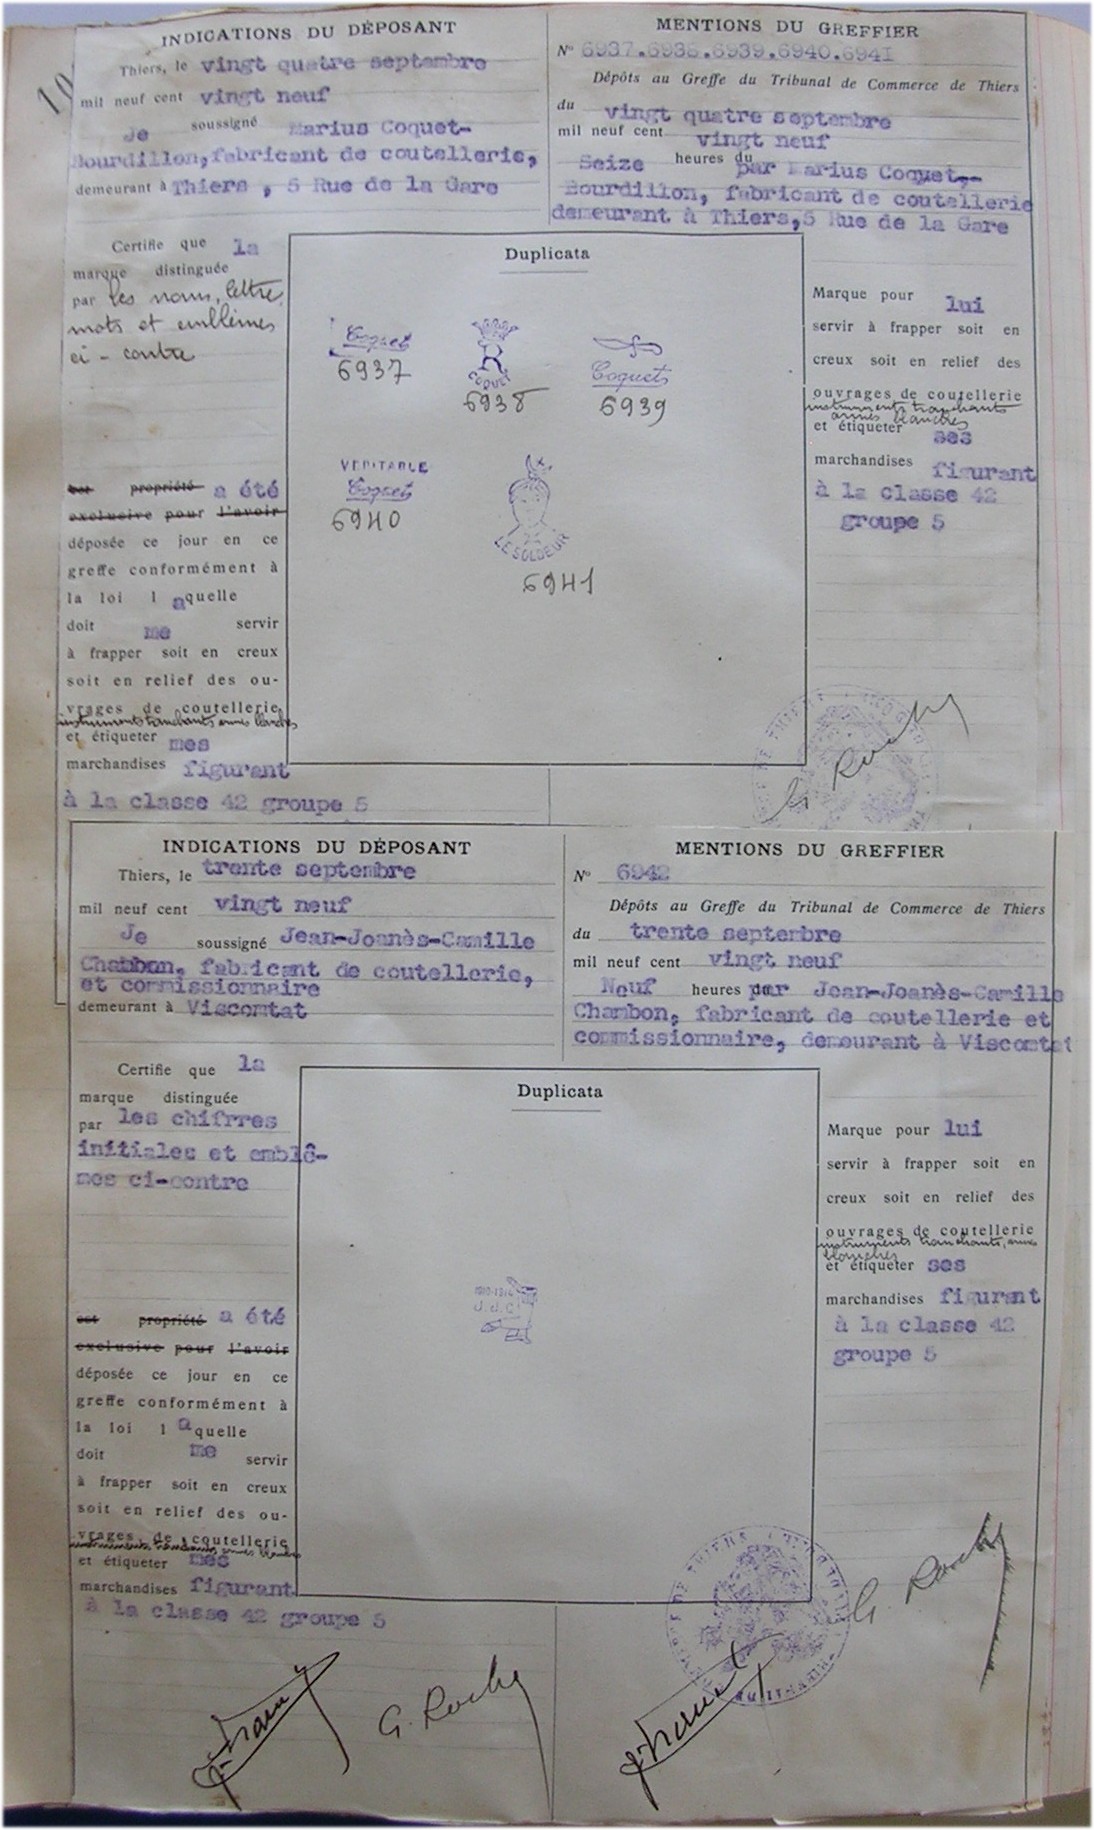 INDICATIONS DU DÉPOSANT
Thiers, le vingt quatre septembre
mil neuf cent vingt neuf
Je soussigné Marius Coquet-
Bourdillon, fabricant de coutellerie,
demeurant à Thiers , 5 Rue de la Gare
Certifie que la
marque distinguée
par les noms, lettre,
mots et emblèmes
ci-contre
est propriété a été
exclusive pour l'avoir
déposée ce jour en ce
greffe conformément à
la loi laquelle
doit me servir
à frapper soit en creux
soit en relief des ou-
vrages de coutellerie
instruments tranchants armes blanches
et étiqueter mes
marchandises figurant
à la classe 42 groupe 5
MENTIONS DU GREFFIER
N° 6937.6938.6939.6940.6941
Dépôts au Greffe du Tribunal de Commerce de Thiers
du vingt quatre septembre
mil neuf cent vingt neuf
Seize heures du par Marius Coquet,-
Bourdillon, fabricant de coutellerie
demeurant à Thiers,5 Rue de la Gare
Duplicata
Coquet
6937
R
COQUET
6938
Coquets
6939
VERITABLE
Coquet
6940
LE SOLDEUR
6941
Marque pour lui
servir à frapper soit en
creux soit en relief des
ouvrages de coutellerie
instruments tranchants
armes blanches
et étiqueter ses
marchandises figurant
à la classe 42
groupe 5
G. Roche
INDICATIONS DU DÉPOSANT
Thiers, le trente septembre
mil neuf cent vingt neuf
Je soussigné Jean-Joanès-Camille
Chambon, fabricant de coutellerie,
et commissionnaire
demeurant à Viscomtat
Certifie que la
marque distinguée
par les chifrres
initiales et emblê-
mes ci-contre
est propriété a été
exclusive pour l'avoir
déposée ce jour en ce
greffe conformément à
la loi laquelle
doit me servir
à frapper soit en creux
soit en relief des ou-
vrages de coutellerie
instruments tranchants armes blanches
et étiqueter mes
marchandises figurant
à la classe 42 groupe 5
MENTIONS DU GREFFIER
N° 6942
Dépôts au Greffe du Tribunal de Commerce de Thiers
du trente septembre
mil neuf cent vingt neuf
Neuf heures par Jean-Joanès-Camille
Chambon, fabricant de coutellerie et
commissionnaire, demeurant à Viscomtat
Duplicata
J.J.C
Marque pour lui
servir à frapper soit en
creux soit en relief des
ouvrages de coutellerie
instruments tranchants, armes
blanches
et étiqueter ses
marchandises figurant
à la classe 42
groupe 5
G. Roche
G. Roche